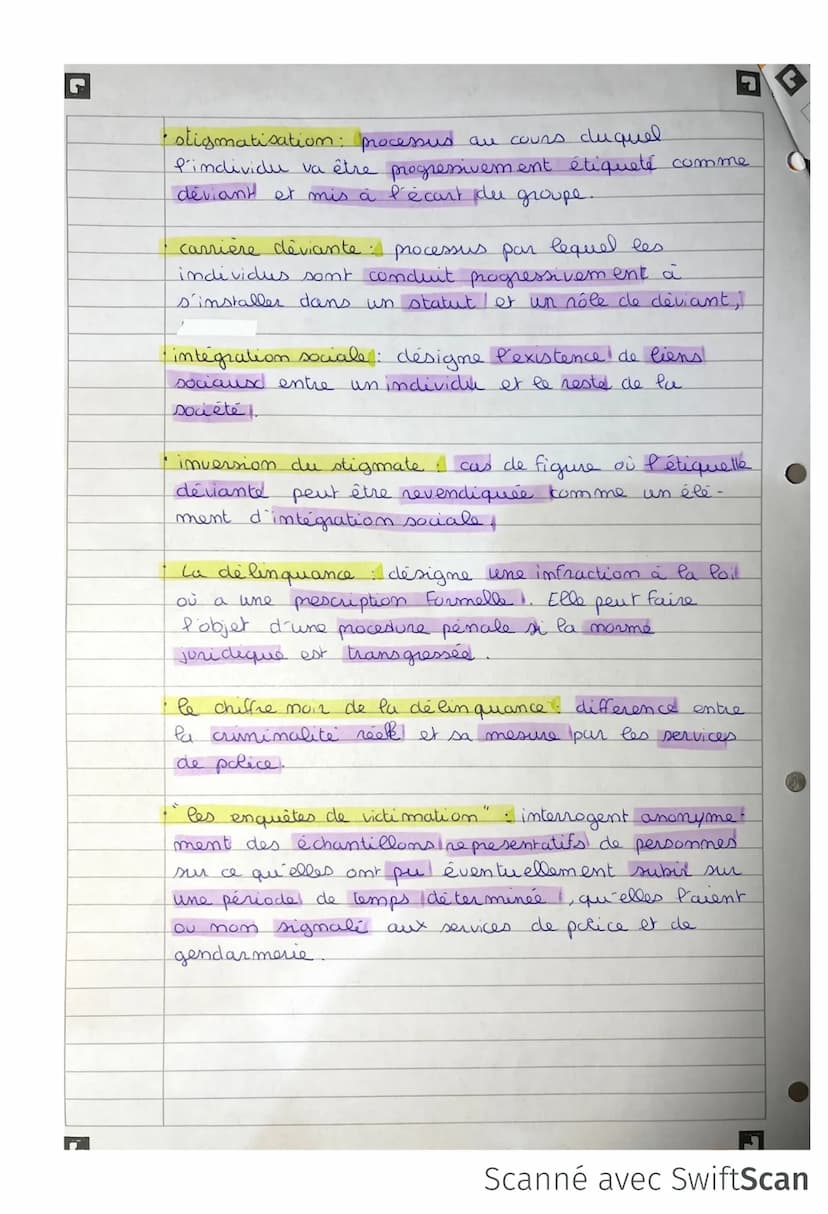 • stigmatisation : processus au cours duquel
l'individu va être progressivement étiqueté comme
déviant et mis à l'écart du groupe.
• carrière déviante : processus par lequel les
individus sont conduit progressivement à
s'installer dans un statut et un rôle de déviant,
• intégration sociale : désigne l'existence de liens
sociaux entre un individu et le reste de la
société.
• inversion du stigmate : cas de figure où l'étiquette
déviante peut être revendiquée comme un élé-
ment d'intégration sociale.
• La délinquance : désigne une infraction à la loi
où a une prescription formelle. Elle peut faire
l'objet d'une procedure pénale si la norme
juridique est transgressée.
• le chiffre noir de la délinquance : différence entre
la criminalité réelle et sa mesure par les services
de police.
• "les enquêtes de victimation" : interrogent anonyme-
ment des échantillons représentatifs de personnes
sur ce qu'elles ont pu éventuellement subir sur
une période de temps déterminée, qu'elles l'aient
ou non signalé aux services de police et de
gendarmerie.
Scanné avec SwiftScan